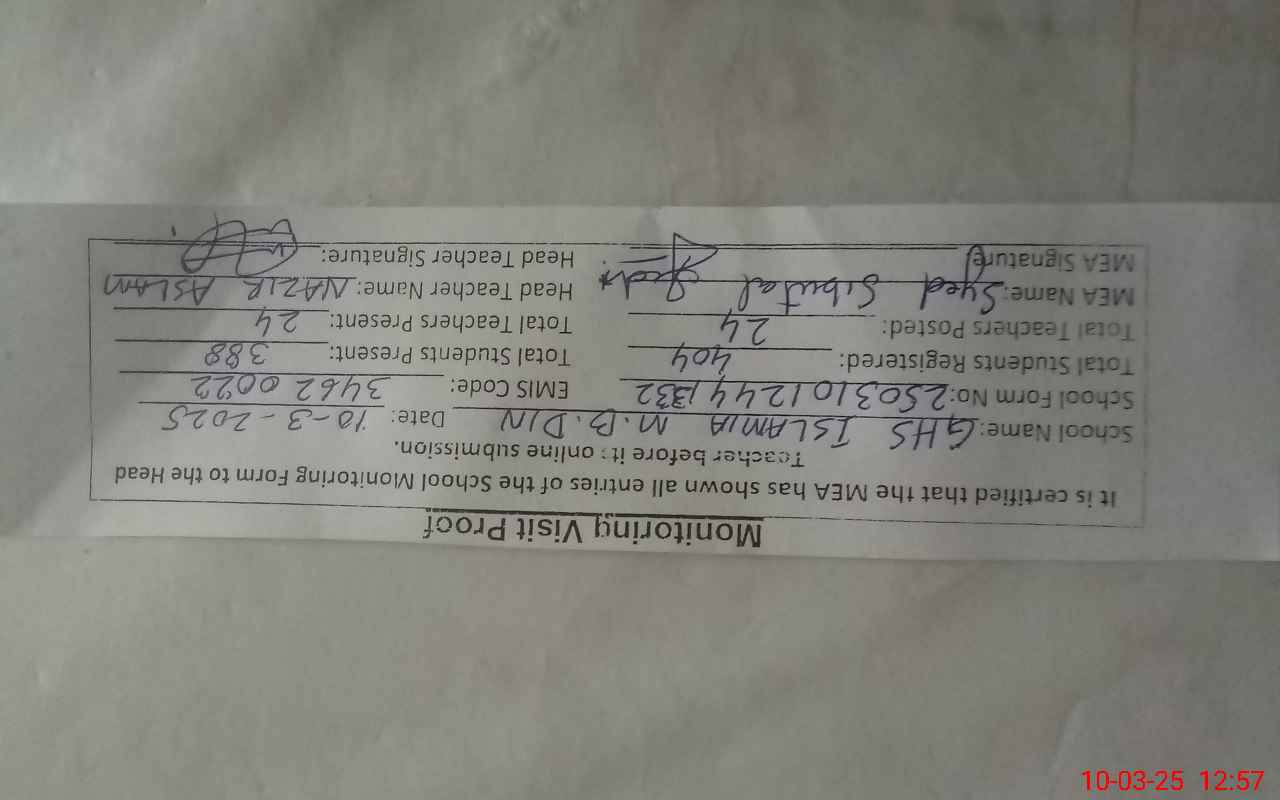 Monitoring Visit Proof
It is certified that the MEA has shown all entries of the School Monitoring Form to the Head
Teacher before it : online submission.
School Name: GHS ISLAMIA M.B.DIN Date: 10-3-2025
School Form No: 25031012441332 EMIS Code: 34620022
Total Students Registered: 404 Total Students Present: 388
Total Teachers Posted: 24 Total Teachers Present: 24
MEA Name: Syed Head Teacher Name: NAZIR ASLAM
MEA Signature Head Teacher Signature:
10-03-25 12:57